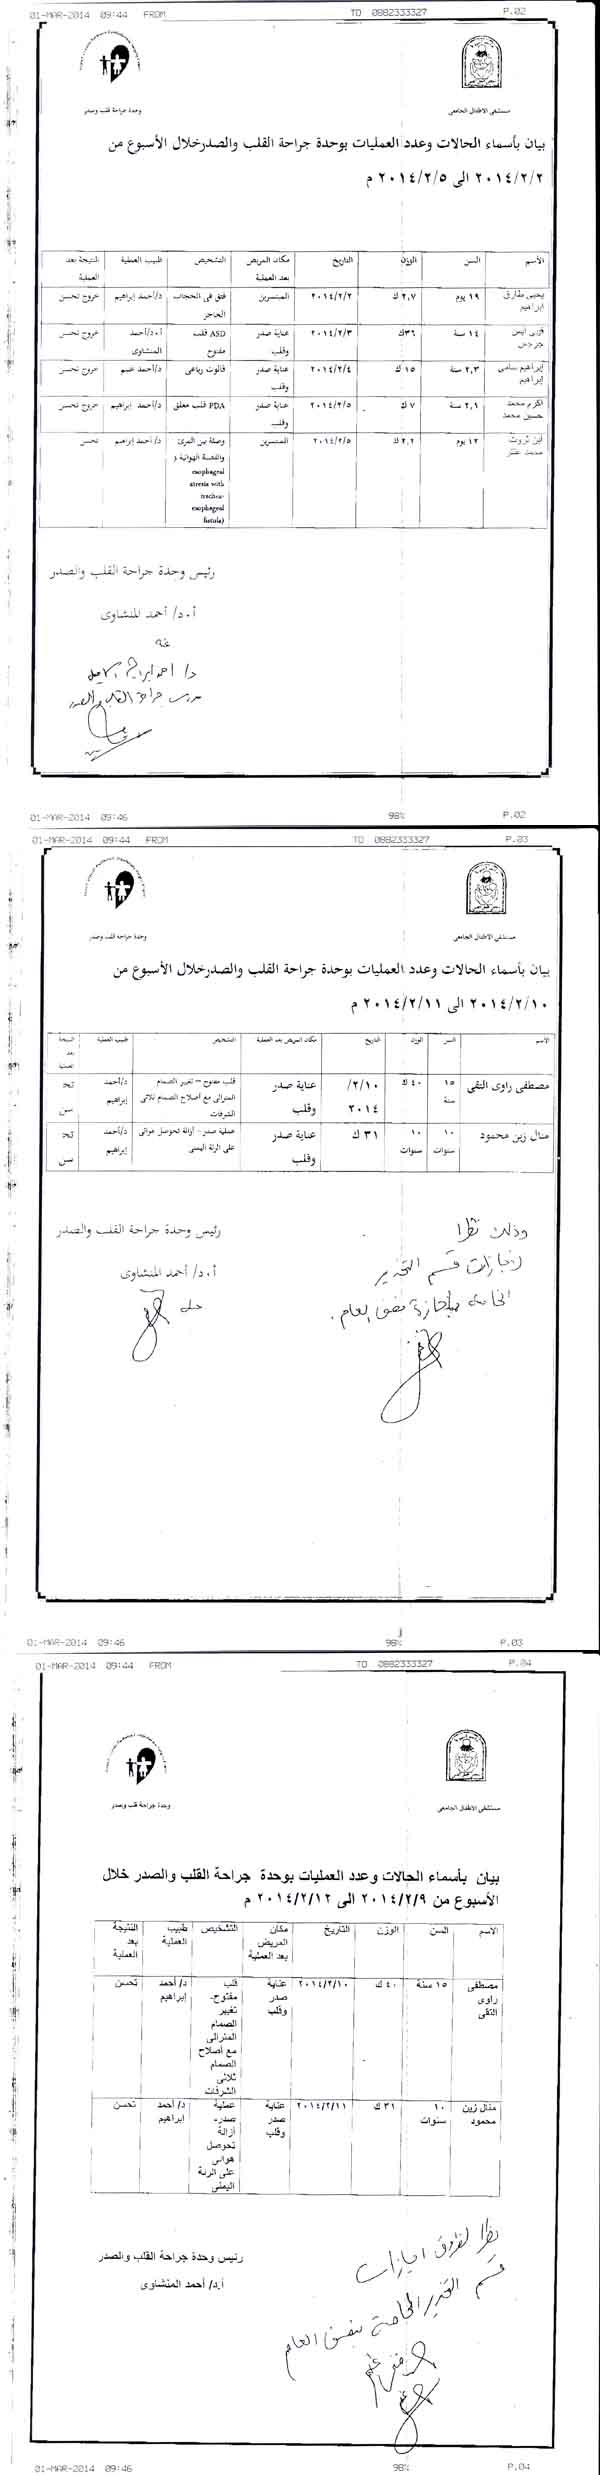 01-MAR-2014 09:44 FROM TO 0882333327 P.02
وحدة جراحة قلب وصدر
مستشفى الاطفال الجامعى
بيان بأسماء الحالات وعدد العمليات بوحدة جراحة القلب والصدرخلال الأسبوع من
٢٠١٤/٢/٢ الى ٢٠١٤/٢/٥ م
الأسم السن الوزن التاريخ مكان المريض بعد العملية التشخيص طبيب العملية النتيجة بعد العملية
يحيى طارق ابراهيم ١٩ يوم ٢,٧ ك ٢٠١٤/٢/٢ المبتسرين فتق فى الحجاب الحاجز د/أحمد إبراهيم خروج تحسن
جرجس ١٤ سنة ٣٦ك ٢٠١٤/٢/٣ عناية صدر وقلب ASD قلب مفتوح أ.د/أحمد المنشاوى خروج تحسن
إبراهيم سامى إبراهيم ٢,٣ سنة ١٥ ك ٢٠١٤/٢/٤ عناية صدر وقلب فالوت رباعى د/أحمد غنيم خروج تحسن
اكرم محمد حسين محمد ٢,١ سنة ٧ ك ٢٠١٤/٢/٥ عناية صدر وقلب PDA قلب مغلق د/أحمد إبراهيم خروج تحسن
ابن ثروت محمد ١٢ يوم ٢,٢ ك ٢٠١٤/٢/٥ المبتسرين وصلة بين المرئ والقصبة الهوائية ( esophageal atresia with trachea-esophageal fistula) د/ أحمد إبراهيم تحسن
رئيس وحدة جراحة القلب والصدر
أ.د/ أحمد المنشاوى
عنه
د/ احمد ابراهيم
مدرس جراحة القلب والصدر
01-MAR-2014 09:46 98% P.02
01-MAR-2014 09:44 FROM TO 0882333327 P.03
وحدة جراحة قلب وصدر
مستشفى الاطفال الجامعى
بيان بأسماء الحالات وعدد العمليات بوحدة جراحة القلب والصدرخلال الأسبوع من
٢٠١٤/٢/١٠ الى ٢٠١٤/٢/١١ م
الاسم السن الوزن التاريخ مكان المريض بعد العملية التشخيص طبيب العملية النتيجة بعد العملية
مصطفى راوى التقى ١٥ سنة ٤٠ ك ٢/١٠/ ٢٠١٤ عناية صدر وقلب قلب مفتوح – تغيير الصمام المترالى مع أصلاح الصمام ثلاثى الشرفات د/أحمد إبراهيم تحسن
منال زين محمود ١٠ سنوات ١٠ سنوات ٣١ ك عناية صدر وقلب عملية صدر- أزالة تحوصل هوائى على الرئة اليسى د/أحمد إبراهيم تحسن
رئيس وحدة جراحة القلب والصدر
أ.د/ أحمد المنشاوى
وذلك نظرا
لاجازات قسم التخدير
الخاصة باجازة نصف العام.
01-MAR-2014 09:46 98% P.03
01-MAR-2014 09:44 FROM TO 0882333327 P.04
وحدة جراحة قلب وصدر
مستشفى الاطفال الجامعى
بيان بأسماء الحالات وعدد العمليات بوحدة جراحة القلب والصدر خلال
الأسبوع من ٢٠١٤/٢/٩ الى ٢٠١٤/٢/١٢ م
الاسم السن الوزن التاريخ مكان المريض بعد العملية التشخيص طبيب العملية النتيجة بعد العملية
مصطفى راوى التقى ١٥ سنة ٤٠ ك ٢٠١٤/٢/١٠ عناية صدر وقلب قلب مفتوح- تغيير الصمام المترالى مع أصلاح الصمام ثلاثى الشرفات د/ أحمد إبراهيم تحسن
منال زين محمود ١٠ سنوات ٣١ ك ٢٠١٤/٢/١١ عناية صدر وقلب عملية صدر- أزالة تحوصل هوائى على الرئة اليمنى د/ أحمد إبراهيم تحسن
نظرا لظروف اجازات
قسم التخدير الخاصة بنصف العام
رئيس وحدة جراحة القلب والصدر
أ.د/ أحمد المنشاوى
01-MAR-2014 09:46 98% P.04